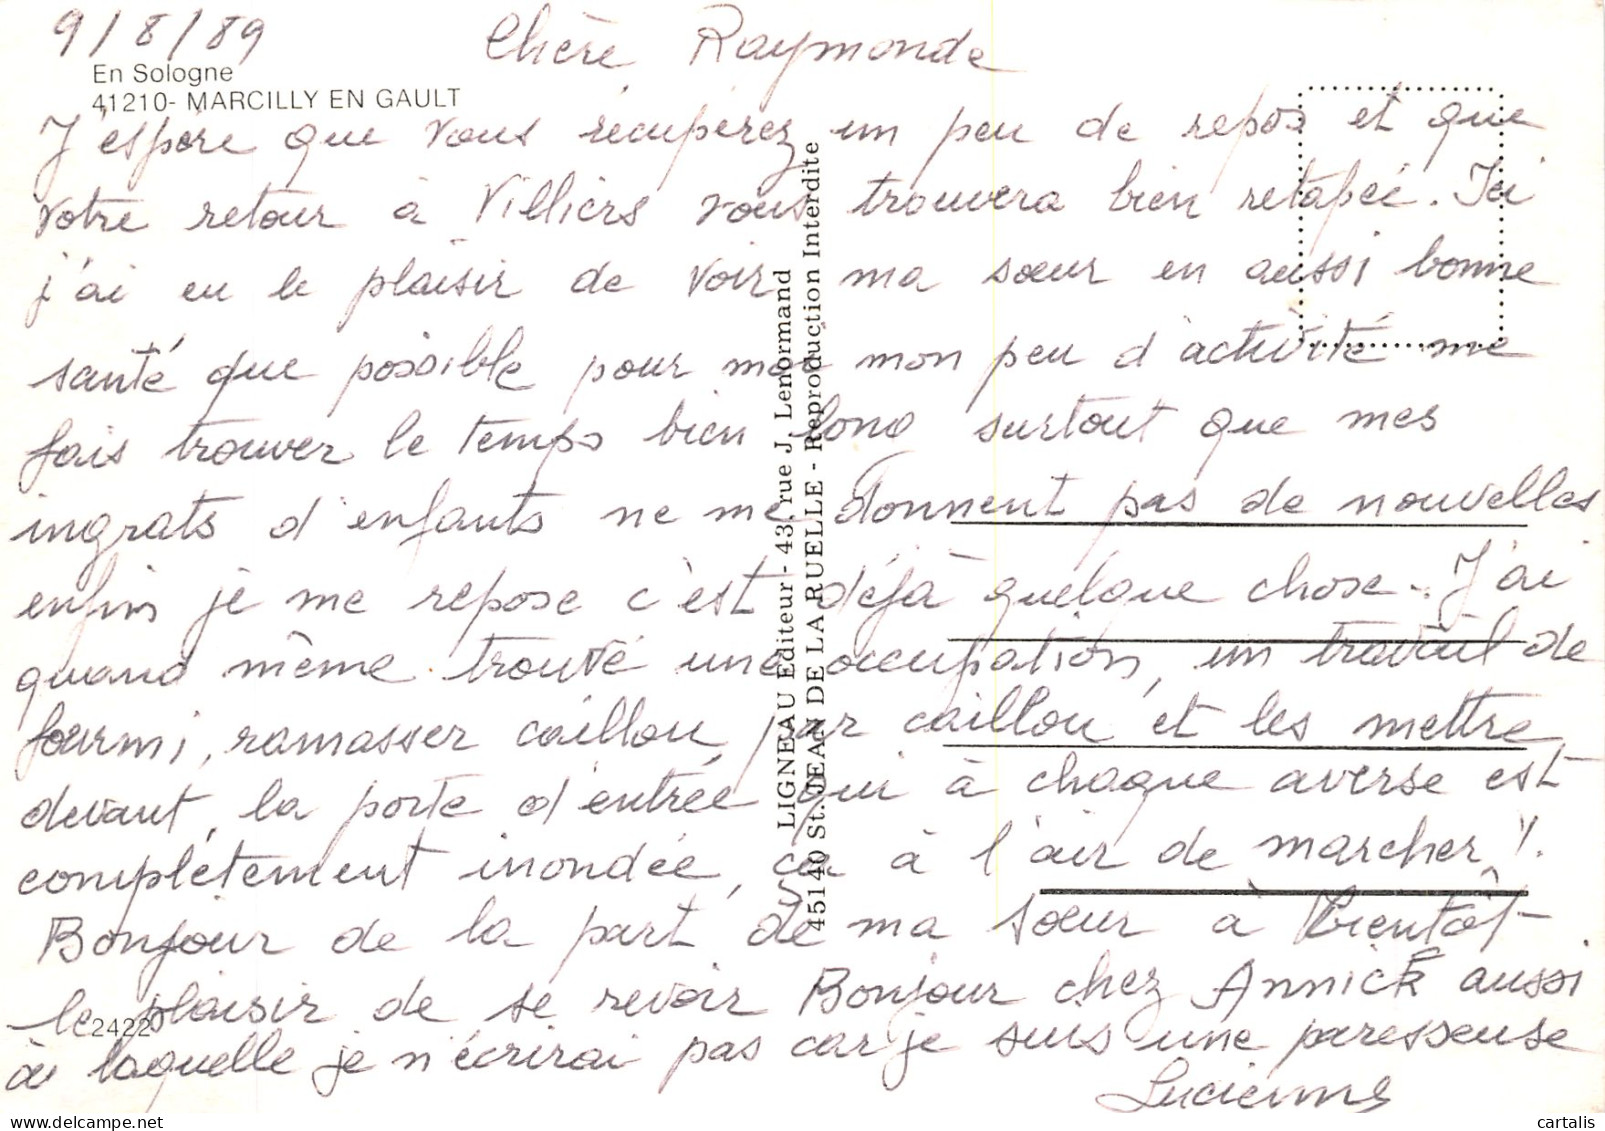 9/8/89
Chère Raymonde
En Sologne
41210- MARCILLY EN GAULT
J'espère que vous récupérez un peu de repos et que
votre retour à Villiers vous trouvera bien retapée. Ici
j'ai eu le plaisir de voir ma sœur en aussi bonne
santé que possible pour moi mon peu d'activité me
fais trouver le temps bien long surtout que mes
ingrats d'enfants ne me donnent pas de nouvelles
enfin je me repose c'est déjà quelque chose. J'ai
quand même trouvé une occupation, un travail de
fourmi, ramasser caillou par caillou et les mettre
devant la porte d'entrée qui à chaque averse est
complètement inondée, ça à l'air de marcher !.
Bonjour de la part de ma sœur à bientôt
le plaisir de se revoir Bonjour chez Annick aussi
à laquelle je n'écrirai pas car je suis une paresseuse
Lucienne
2422
LIGNEAU Editeur - 43, rue J. Lenormand
45140 St. JEAN DE LA RUELLE - Reproduction Interdite
cartalis